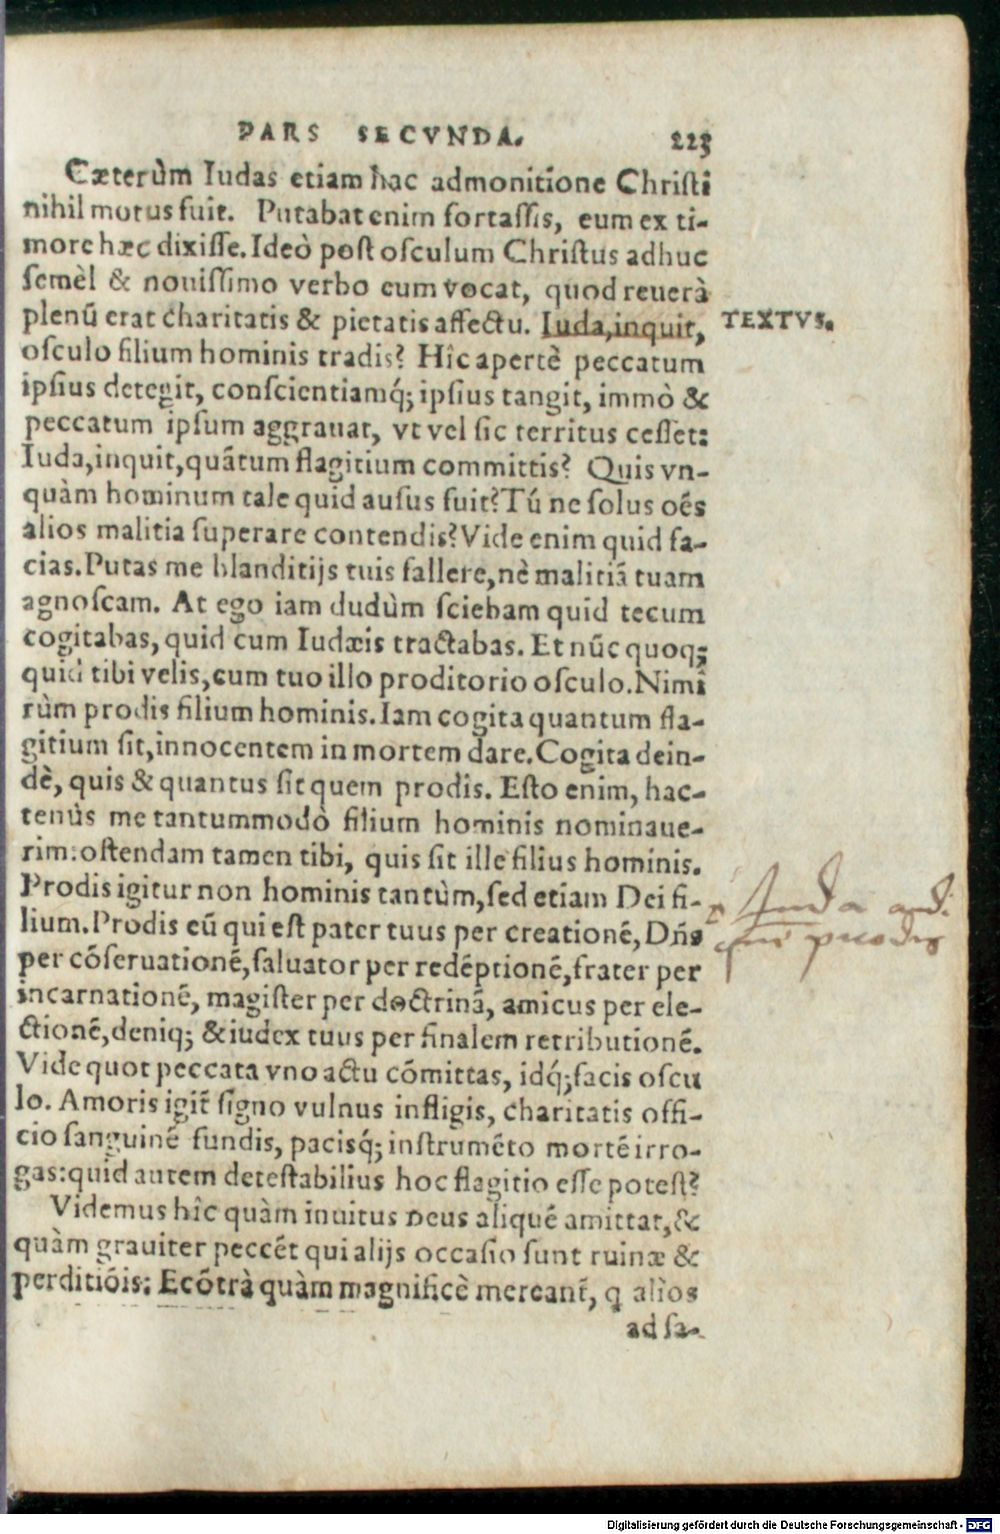 PARS SECVNDA. 223
Cæterùm Iudas etiam hac admonitione Christi
nihil motus fuit. Putabat enim fortassis, eum ex ti-
more hæc dixisse. Ideò post osculum Christus adhuc
semèl & nouissimo verbo eum vocat, quod reuerà
plenũ erat charitatis & pietatis affectu. Iuda, inquit, TEXTVS.
osculo filium hominis tradis? Hîc apertè peccatum
ipsius detegit, conscientiamq́; ipsius tangit, immò &
peccatum ipsum aggrauat, vt vel sic territus cesset:
Iuda, inquit, quãtum flagitium committis? Quis vn-
quàm hominum tale quid ausus fuit? Tú ne solus oẽs
alios malitia superare contendis? Vide enim quid fa-
cias. Putas me blanditijs tuis fallere, nè malitiã tuam
agnoscam. At ego iam dudùm sciebam quid tecum
cogitabas, quid cum Iudæis tractabas. Et nũc quoq;
quid tibi velis, cum tuo illo proditorio osculo. Nimi
rùm prodis filium hominis. Iam cogita quantum fla-
gitium sit, innocentem in mortem dare. Cogita dein-
dè, quis & quantus sit quem prodis. Esto enim, hac-
tenùs me tantummodò filium hominis nominaue-
rim: ostendam tamen tibi, quis sit ille filius hominis.
Prodis igitur non hominis tantùm, sed etiam Dei fi-
lium. Prodis eũ qui est pater tuus per creationẽ, Dñs
per cõseruationẽ, saluator per redẽptionẽ, frater per
incarnationẽ, magister per doctrinã, amicus per ele-
ctionẽ, deniq; & iudex tuus per finalem retributionẽ.
Vide quot peccata vno actu cõmittas, idq́; facis oscu
lo. Amoris igit̃ signo vulnus infligis, charitatis offi-
cio sanguinẽ fundis, pacisq́; instrumẽto mortẽ irro-
gas: quid autem detestabilius hoc flagitio esse potest?
Videmus hîc quàm inuitus Deus aliquẽ amittat, &
quàm grauiter peccẽt qui alijs occasio sunt ruinæ &
perditiõis: Ecõtrà quàm magnificè mereant̃, q alios
ad sa-
Juda
prodis
Digitalisierung gefördert durch die Deutsche Forschungsgemeinschaft - DFG